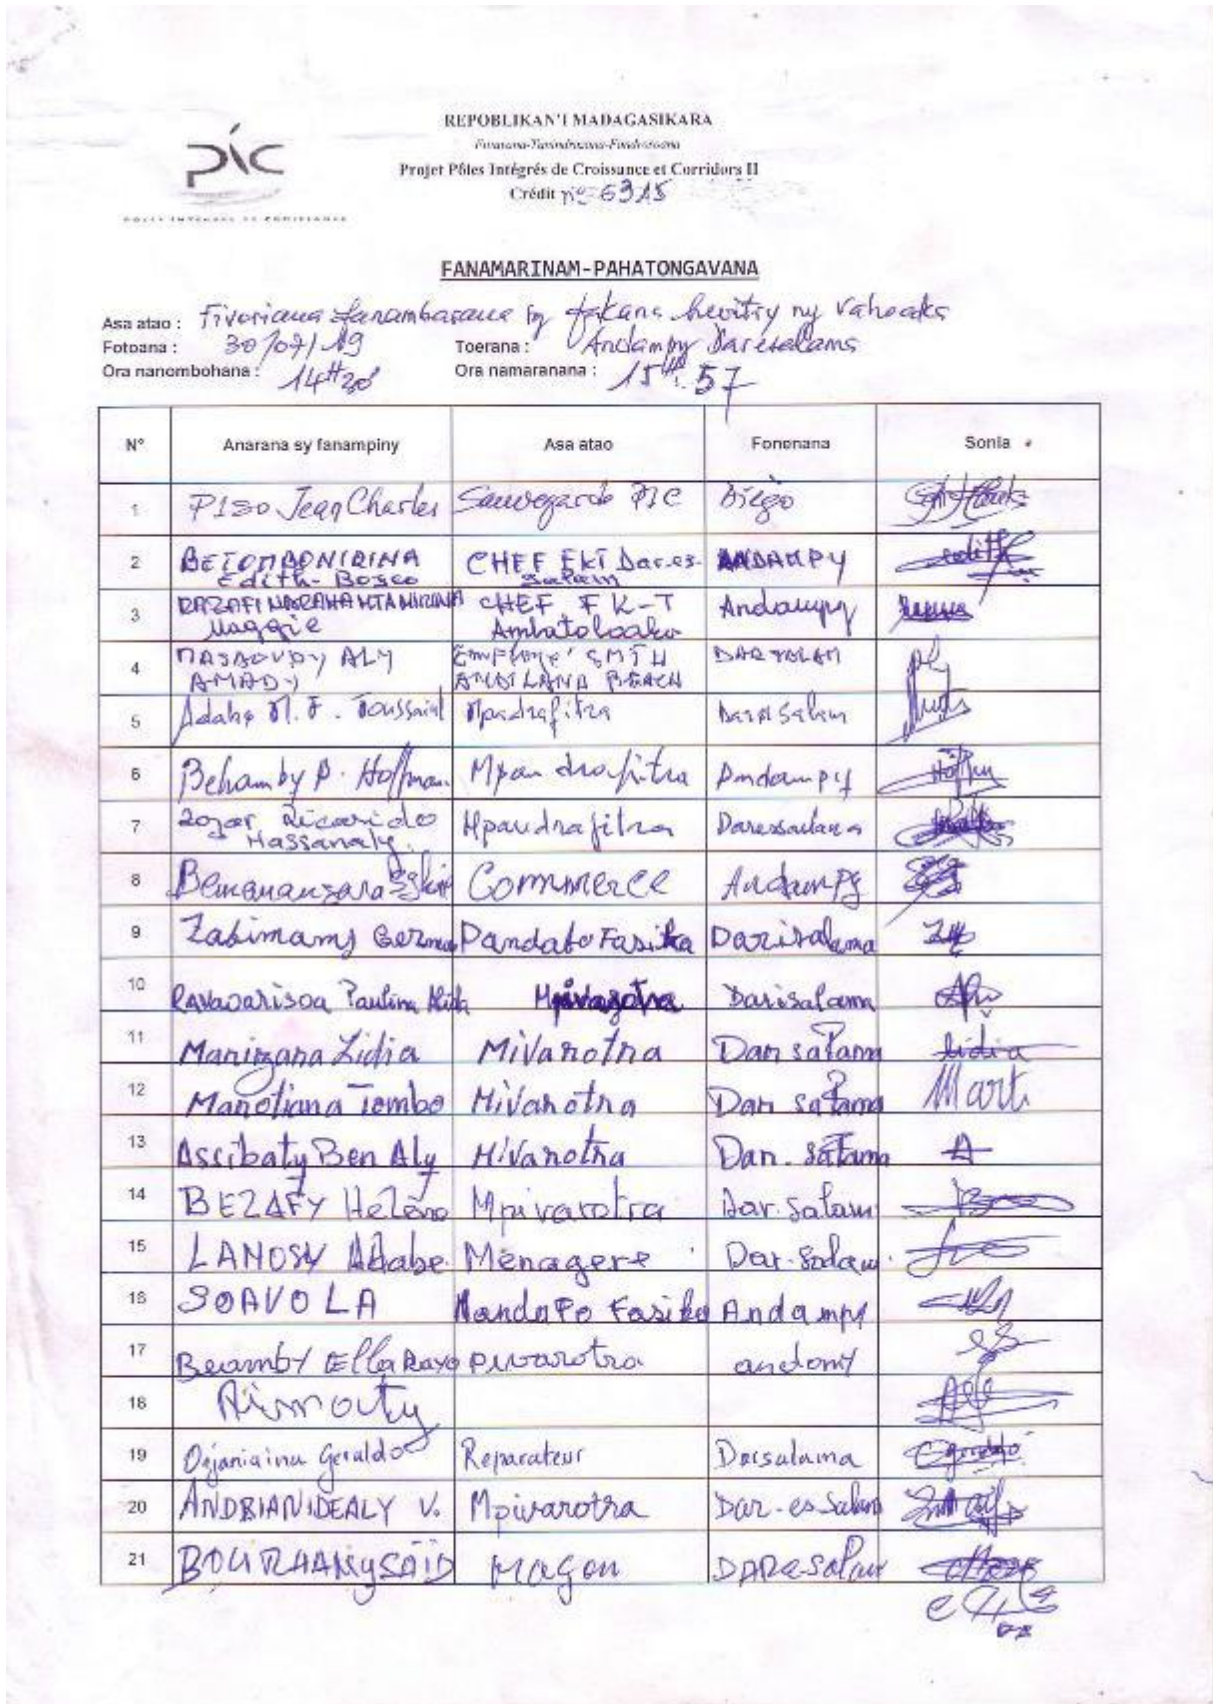 REPOBLIKAN'I MADAGASIKARA
Fitiavana-Tanindrazana-Fandrosoana
Projet Pôles Intégrés de Croissance et Corridors II
Crédit n° 6315
pic
POLES INTEGRES DE CROISSANCE
FANAMARINAM-PAHATONGAVANA
Asa atao : Fivoriana fanambarana sy hevitry ny Vahoaka
Fotoana : 30/07/19 Toerana : Andampy Daresalama
Ora nanombohana : 14H20 Ora namaranana : 15H 57
N° Anarana sy fanampiny Asa atao Fonenana Sonia
1 PISO Jean Charles Sauvegarde PIC Diego
2 BETOMBONIRINA Edith-Bosco CHEF FKT Dar.es-Salam ANDAMPY
3 RAZAFINARAHANTANIRINA Maggie CHEF FK-T Ambatoloako Andampy
4 MASAOVDY ALY AMADY Employé SMTH ANDILANA BEACH DARSALAM
5 Adabo M. F. Toussaint Mpadrafitra Dar Salam
6 Behamby P. Hoffman Mpandrafitra Andampy
7 Zozar Ricarido Hassanaly. Mpandrafitra Daressalama
8 Bemananzara Commerce Andampy
9 Zabimamy Germa Pandato Fasika Darisalama
10 RAVAOARISOA Paulina Alida Mpivarotra Darisalama
11 Manizana Lidia Mivarotra Dar salama lidia
12 Manotiana Tombo Mivarotra Dar salama Mart
13 Assibaty Ben Aly Mivarotra Dar. salama A
14 BEZAFY Helène Mpivarotra Dar. Salam
15 LANOSY Adabe Menagere Dar. Salam
16 SOAVOLA Mandato Fasika Andampy
17 Beamby Ella Raxo pivarotra andamy
18
19 Ogianiaina Geraldo Reparateur Darsalama
20 ANDRIANIDEALY V. Mpivarotra Dar-es Salam
21 BOURHANYSAID Maçon DAReSalam